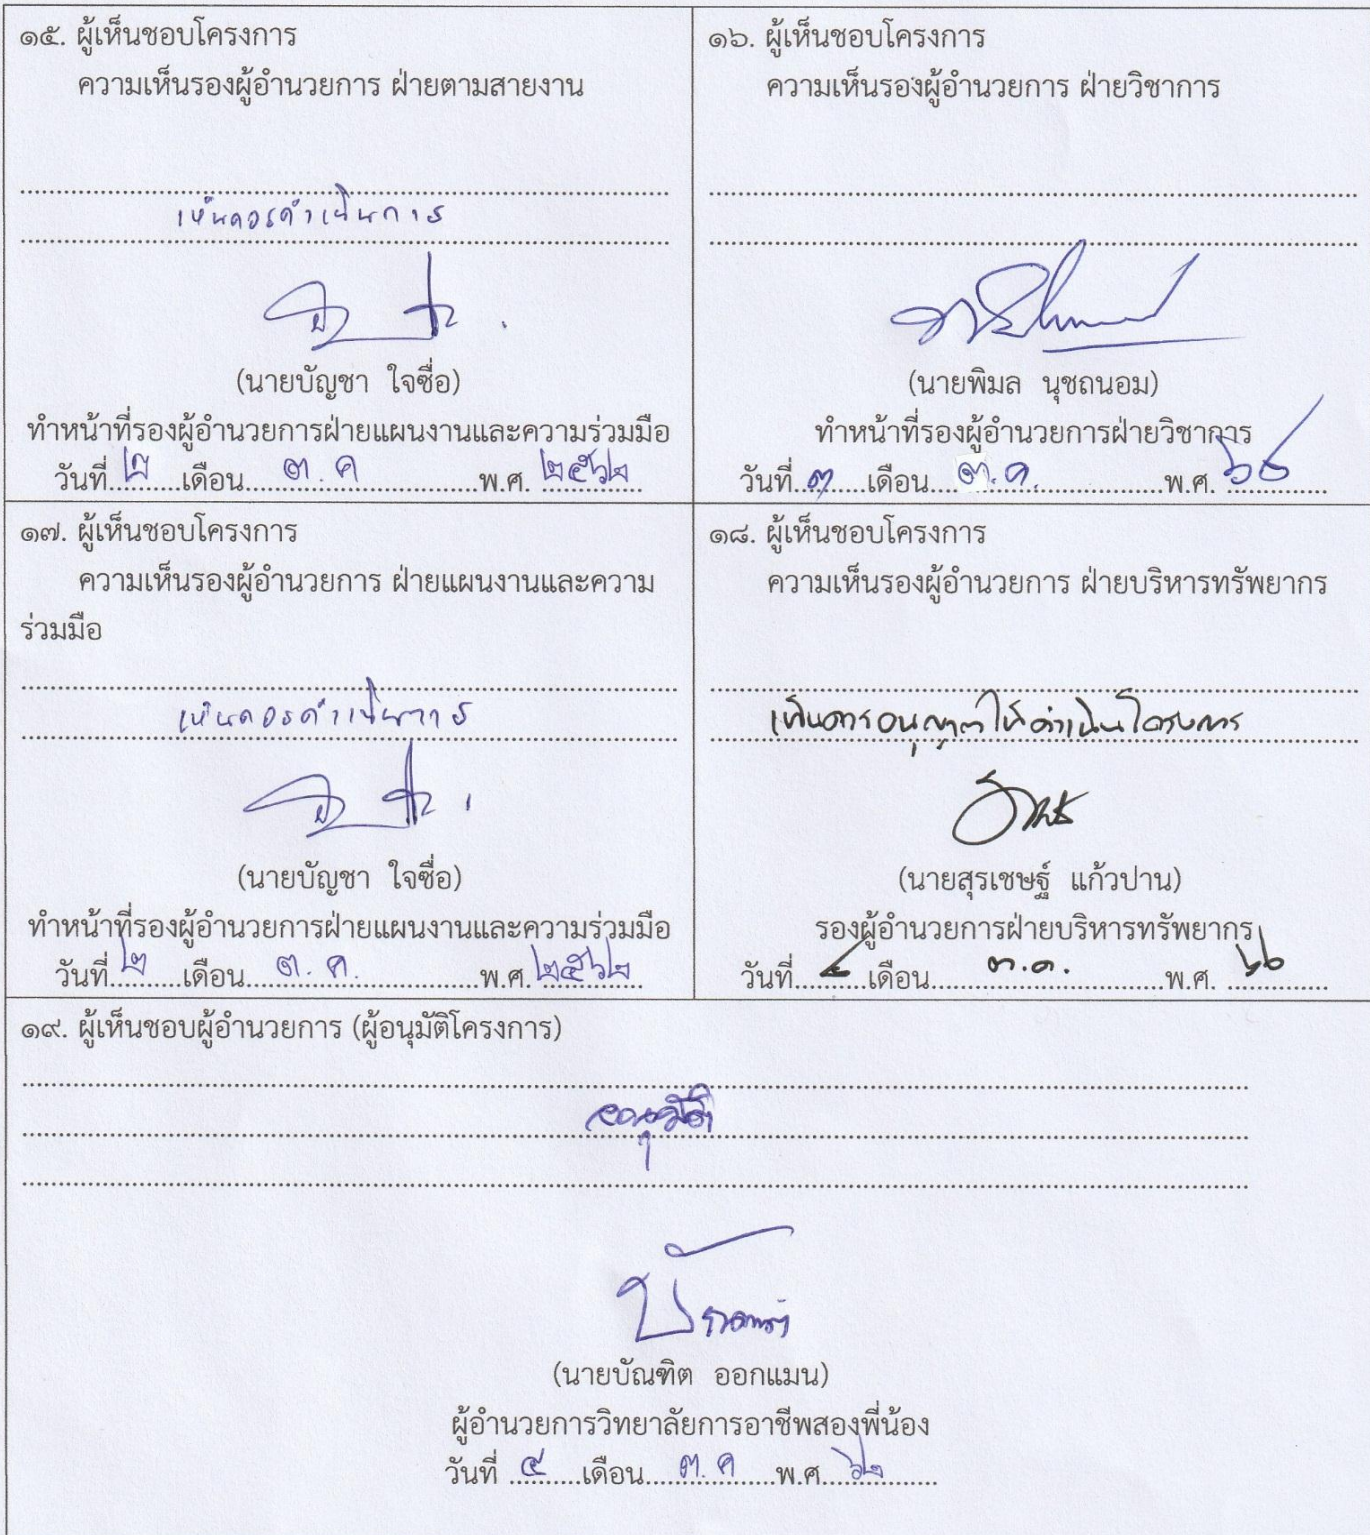 ๑๕. ผู้เห็นชอบโครงการ
ความเห็นรองผู้อำนวยการ ฝ่ายตามสายงาน
เห็นควรดำเนินการ
(นายบัญชา ใจซื่อ)
ทำหน้าที่รองผู้อำนวยการฝ่ายแผนงานและความร่วมมือ
วันที่ ๒ เดือน ต.ค พ.ศ. ๒๕๖๒
๑๖. ผู้เห็นชอบโครงการ
ความเห็นรองผู้อำนวยการ ฝ่ายวิชาการ
(นายพิมล นุชถนอม)
ทำหน้าที่รองผู้อำนวยการฝ่ายวิชาการ
วันที่ ๓ เดือน ต.ค. พ.ศ. ๖๒
๑๗. ผู้เห็นชอบโครงการ
ความเห็นรองผู้อำนวยการ ฝ่ายแผนงานและความ
ร่วมมือ
เห็นควรดำเนินการ
(นายบัญชา ใจซื่อ)
ทำหน้าที่รองผู้อำนวยการฝ่ายแผนงานและความร่วมมือ
วันที่ ๒ เดือน ต.ค. พ.ศ. ๒๕๖๒
๑๘. ผู้เห็นชอบโครงการ
ความเห็นรองผู้อำนวยการ ฝ่ายบริหารทรัพยากร
เห็นควรอนุญาตให้ดำเนินโครงการ
(นายสุรเชษฐ์ แก้วปาน)
รองผู้อำนวยการฝ่ายบริหารทรัพยากร
วันที่ ๔ เดือน ต.ค. พ.ศ. ๖๒
๑๙. ผู้เห็นชอบผู้อำนวยการ (ผู้อนุมัติโครงการ)
อนุมัติ
(นายบัณฑิต ออกแมน)
ผู้อำนวยการวิทยาลัยการอาชีพสองพี่น้อง
วันที่ ๔ เดือน ต.ค พ.ศ ๖๒